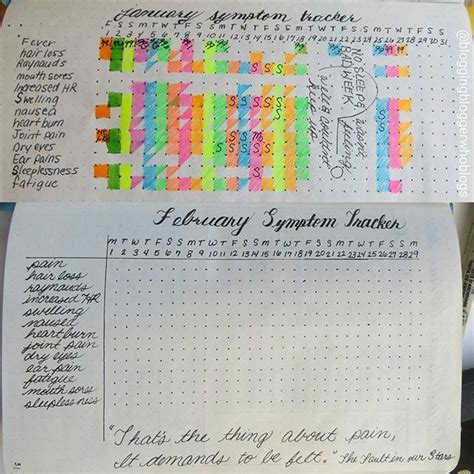 January Symptom tracker
F S S M T W T F S S M T W T F S S M T W T F S S M T W T F S S
1 2 3 4 5 6 7 8 9 10 11 12 13 14 15 16 17 18 19 20 21 22 23 24 25 26 27 28 29 30 31
Fever
hair loss
Raynauds
mouth sores
Increased HR
Swelling
nausea
heart burn
Joint pain
Dry eyes
Ear Pains
Sleeplessness
fatigue
S S S
S
S S
S S
NO SLEEP &
BAD WEEK
feeling
@bloggingbloggerwhoblogs
February Symptom Tracker
M T W T F S S M T W T F S S M T W T F S S M T W T F S S M
1 2 3 4 5 6 7 8 9 10 11 12 13 14 15 16 17 18 19 20 21 22 23 24 25 26 27 28 29
pain
hair loss
raynauds
increased HR
swelling
nausea
heartburn
joint pain
dry eyes
ear pain
fatigue
mouth sores
sleepless ness
"That's the thing about pain,
It demands to be felt." The Fault in our Stars